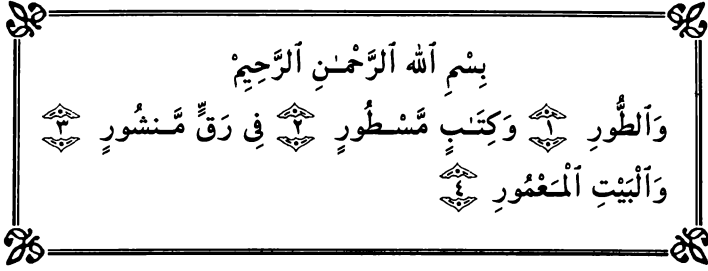 بِسْمِ ٱللَّهِ ٱلرَّحْمَـٰنِ ٱلرَّحِيمِ
وَٱلطُّورِ ١ وَكِتَـٰبٍ مَّسْـطُورٍ ٢ فِى رَقٍّ مَّـنشُورٍ ٣
وَٱلْبَيْتِ ٱلْمَـعْمُورِ ٤